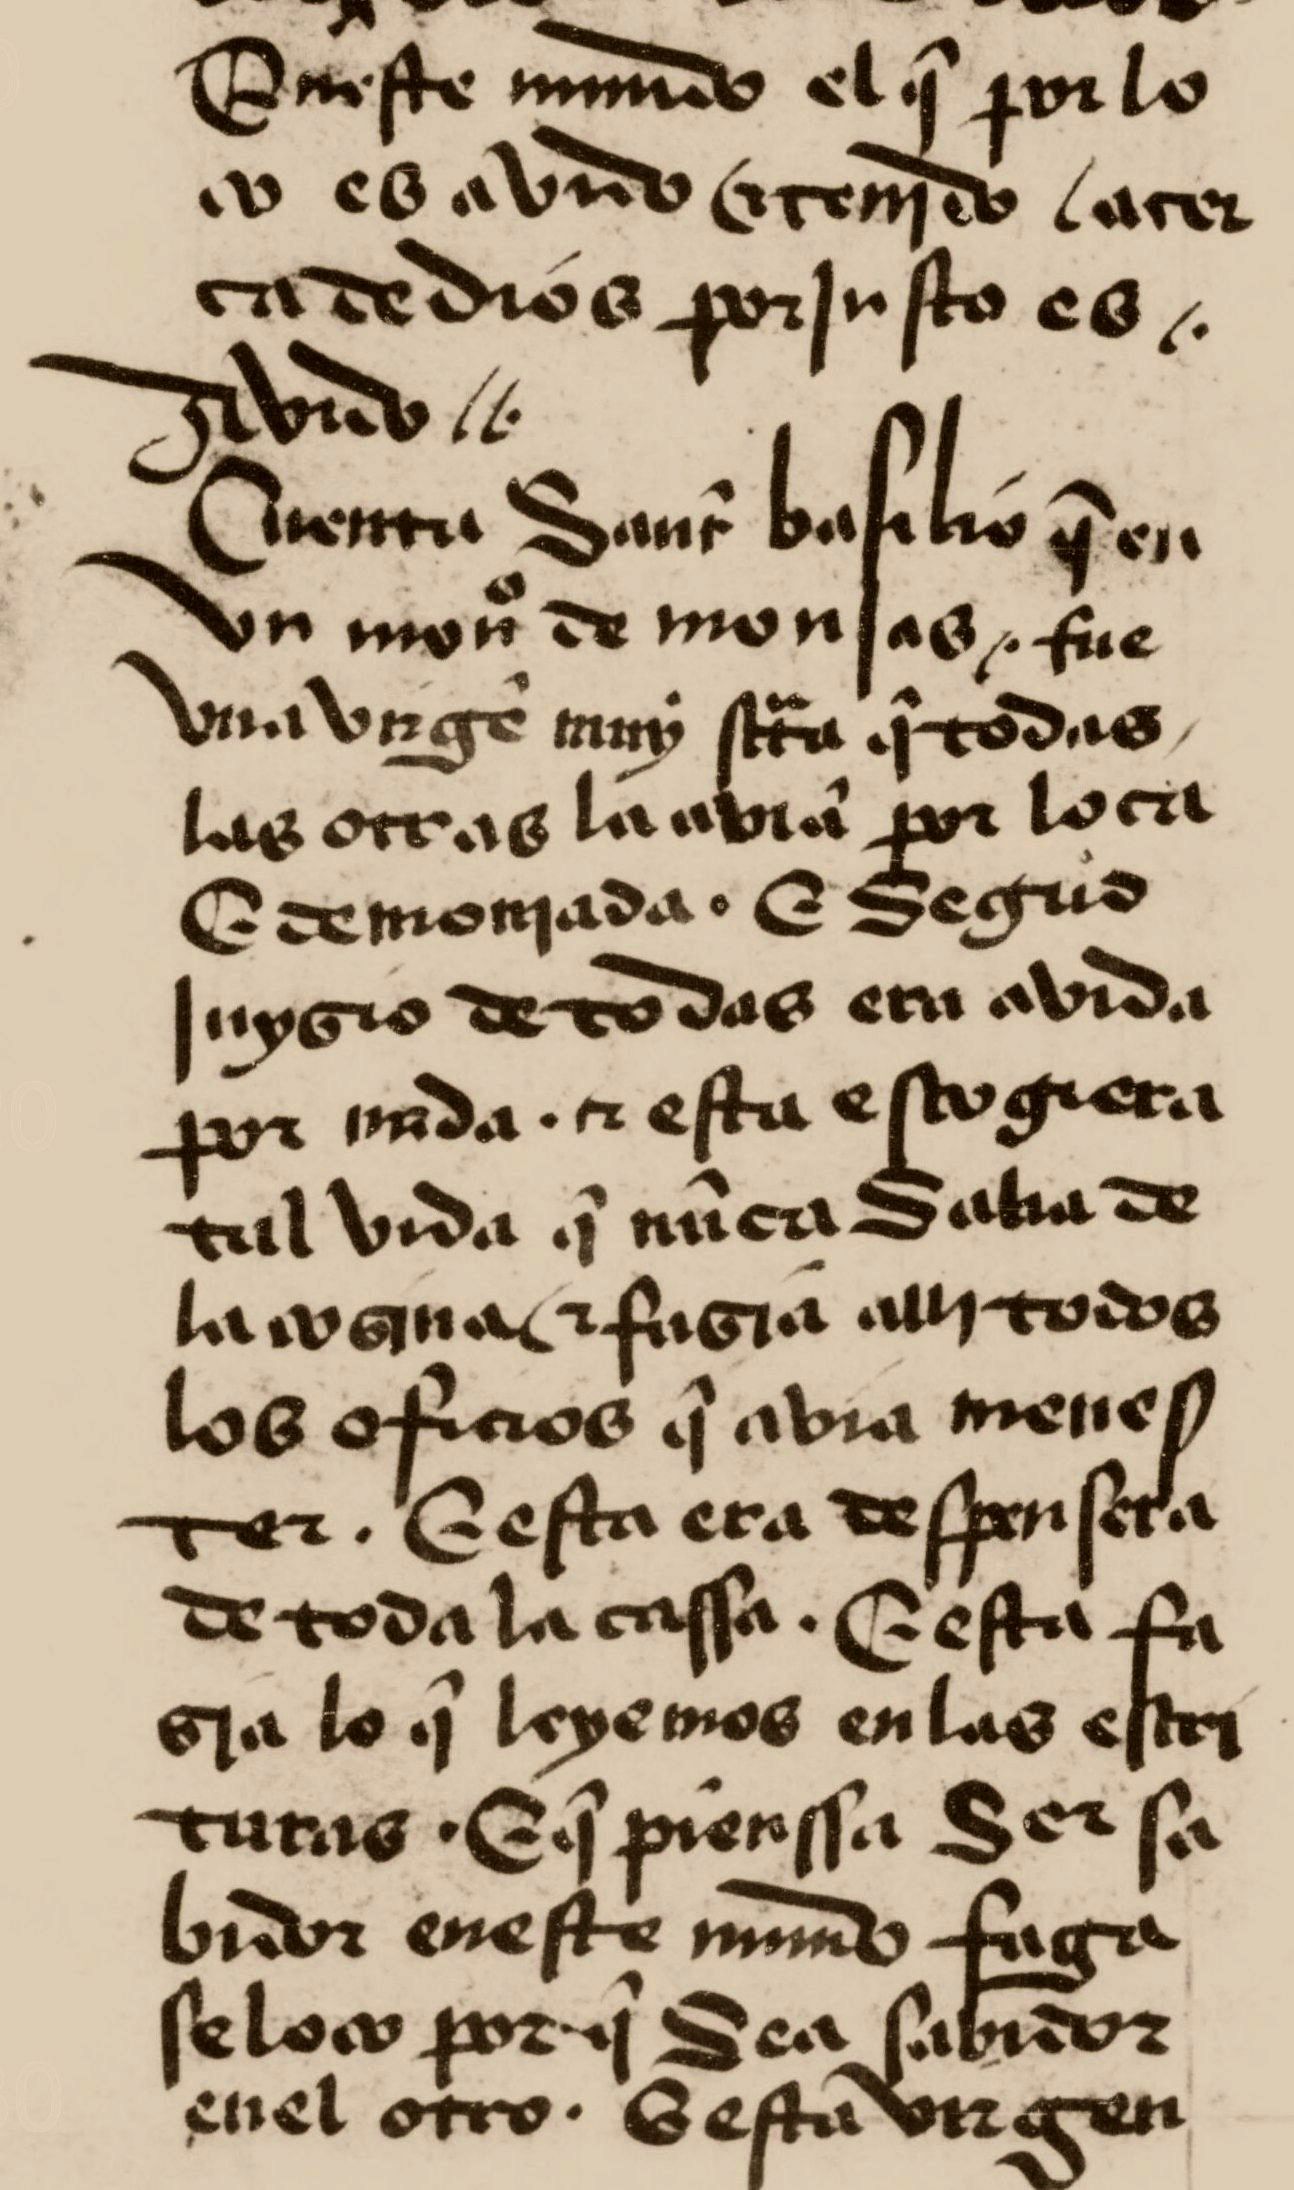 Eneste mundo el q̃ por lo
co es avido ⁊ tenido / acer
ca de dios por Justo es /.
avido //.
Cuenta Sant basilio q̃ en
vn monº de monJas /. fue
vna virgẽ muy sctã q̃ todas /
las otras la aviã por loca
E demoniada . E Segũd
Juyzio de todas era avida
por nada . ⁊ esta escogiera
tal vida q̃ nũca Salia de
la cozina / ⁊ fazia alli todos
los oficios q̃ avia menes
ter . E esta era despensera
de toda la cassa . E esta fa
zia lo q̃ leyemos en las escri
turas . E q̃ pienssa Ser sa
bidor eneste mundo faga
se loco por q̃ Sea sabidor
enel otro . E esta virgen